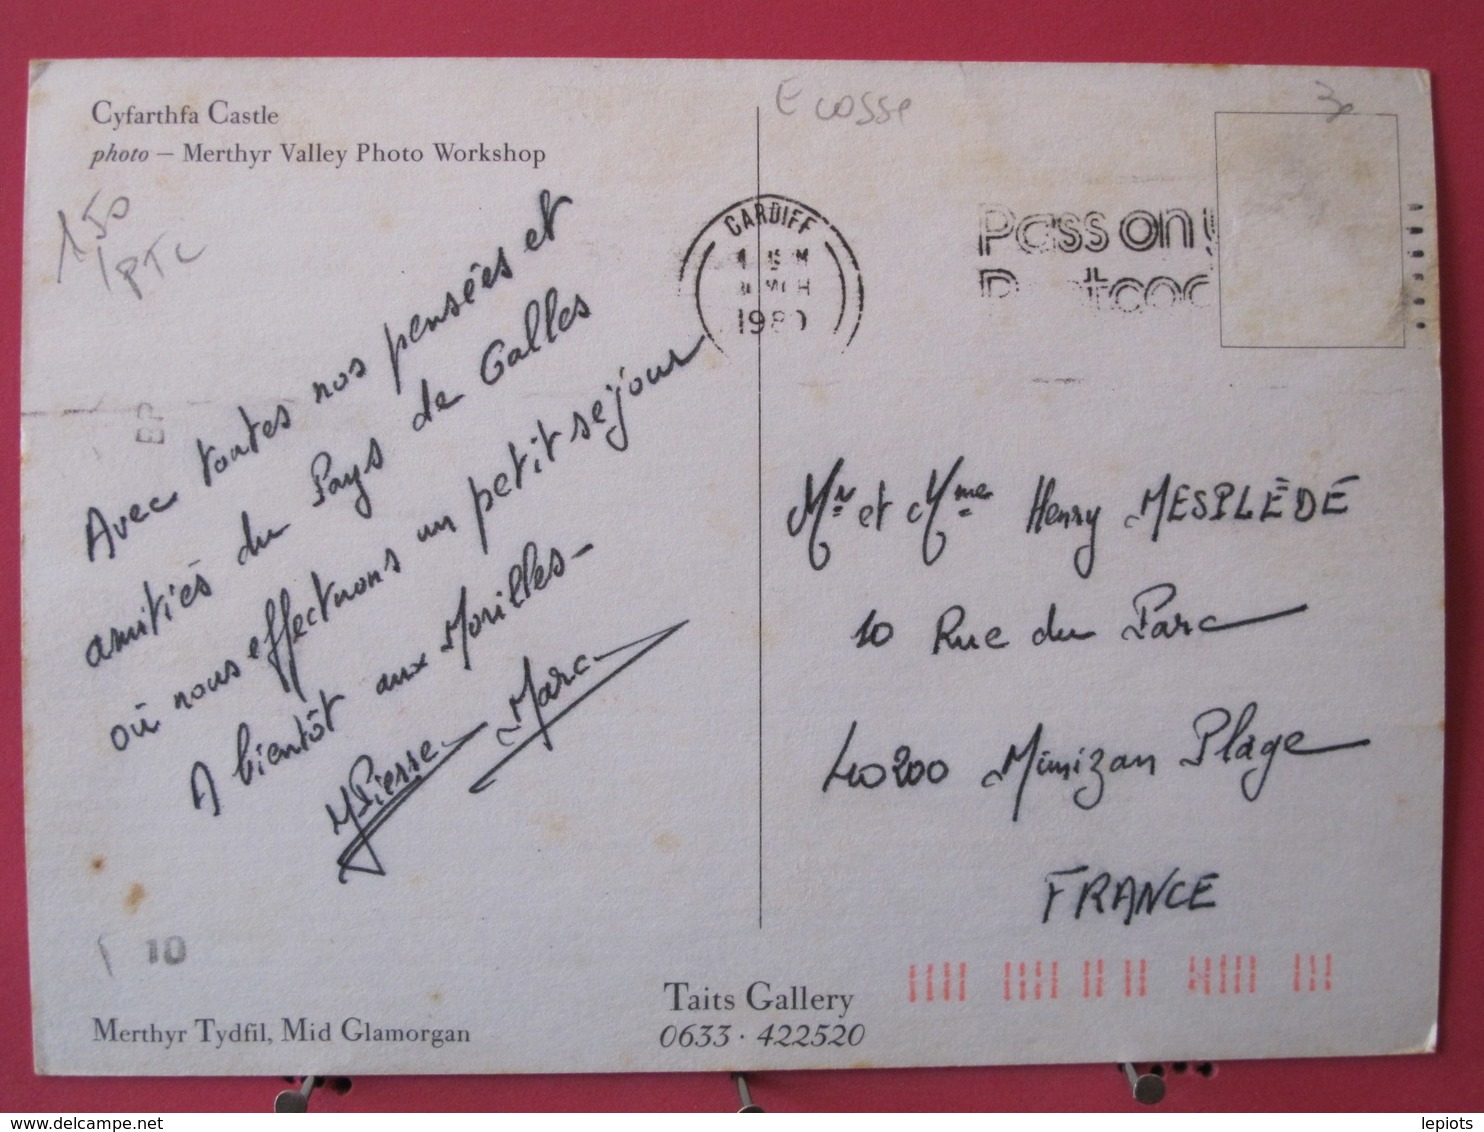 Cyfarthfa Castle
photo – Merthyr Valley Photo Workshop
Ecosse
30
150
Avec toutes nos pensées et
amitiés du Pays de Galles
où nous effectuons un petit séjour
A bientôt aux Morilles –
M Pierre Marc
BP
10
CARDIFF
MCH
Pass on y
P stcod
Mr et Mme Henry MESPLÈDÉ
10 Rue du Parc
40200 Mimizan Plage
FRANCE
Merthyr Tydfil, Mid Glamorgan
Taits Gallery
0633 · 422520
lepiots